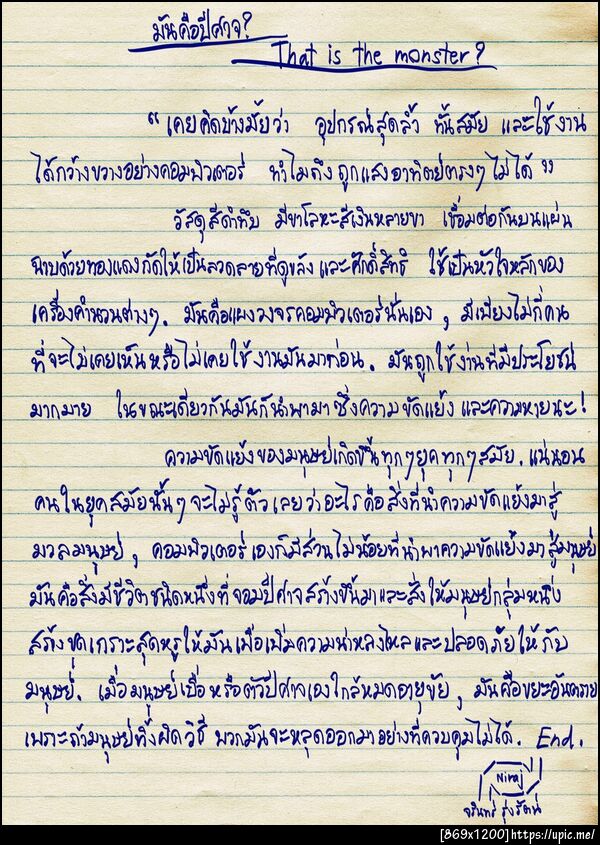 มันคือปีศาจ?
That is the monster?
“ เคยคิดบ้างมั้ยว่า อุปกรณ์สุดล้ำ ทันสมัย และใช้งาน
ได้กว้างขวางอย่างคอมพิวเตอร์ ทำไมถึง ถูกแสงอาทิตย์ตรงๆ ไม่ได้ ”
วัสดุสีดำทึบ มีขาโลหะสีเงินหลายขา เชื่อมต่อกันบนแผ่น
ฉาบด้วยทองแดงกัดให้เป็นลวดลายที่ดูขลัง และศักดิ์สิทธิ์ ใช้เป็นหัวใจหลักของ
เครื่องคำนวนต่างๆ. มันคือแผงวงจรคอมพิวเตอร์นั่นเอง , มีเพียงไม่กี่คน
ที่จะไม่เคยเห็น หรือไม่เคยใช้งานมันมาก่อน. มันถูกใช้งานที่มีประโยชน์
มากมาย ในขณะเดียวกันมันก็นำพามาซึ่งความขัดแย้ง และความหายนะ!
ความขัดแย้งของมนุษย์เกิดขึ้นทุกๆยุคทุกๆสมัย. แน่นอน
คนในยุคสมัยนั้นๆ จะไม่รู้ตัวเลยว่าอะไรคือสิ่งที่นำความขัดแย้งมาสู่
มวลมนุษย์ , คอมพิวเตอร์เองก็มีส่วนไม่น้อยที่นำพาความขัดแย้งมาสู่มนุษย์
มันคือสิ่งมีชีวิตชนิดหนึ่งที่จอมปีศาจสร้างขึ้นมาและสั่งให้มนุษย์กลุ่มหนึ่ง
สร้างชุดเกราะสุดหรูให้มันเพื่อเพิ่มความน่าหลงไหลและปลอดภัยให้กับ
มนุษย์. เมื่อมนุษย์เบื่อ หรือตัวปีศาจเองใกล้หมดอายุขัย , มันคือขยะอันตราย
เพราะถ้ามนุษย์ทิ้งผิดวิธี พวกมันจะหลุดออกมาอย่างที่ควบคุมไม่ได้. End.
Niraj
จรินทร์ รุ่งรัตน์
[869x1200]https://upic.me/